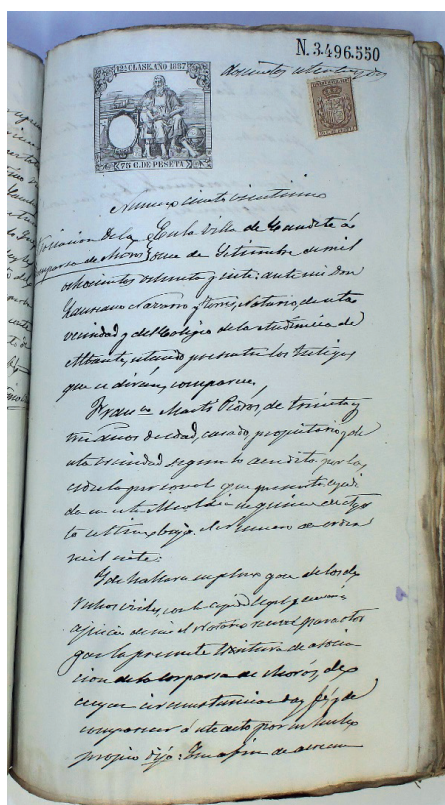 N. 3.496.550
12ª CLASE. AÑO 1887
75 C. DE PESETA
doscientos setenta y
Numero ciento veintiuno
Asociacion de la
Comparsa de Moros
En la Villa de Caudete á
once de Setiembre de mil
ochocientos ochenta y siete: ante mi Don
Navarro y Torres, Notario, de esta
vecindad y del Colegio de la de
Albacete, estando presentes los testigos
que se dirán, comparece,
Franco Martí de treinta y
tres años de edad, casado, propietario, y de
esta vecindad segun lo acredita por la
cédula personal que presenta, expedi
da en esta Alcaldia en quince de Agos
to ultimo bajo el numero de orden
mil siete:
Y de hallarse en pleno goce de los de
rechos civiles, con la capacidad legal
á juicio de mi el Notario para otor
gar la presente Escritura de asocia
cion de la Comparsa de Moros, de
cuyas circunstancias doy fé, y de
comparecer á este acto por su
propio dijo: Que a fin de